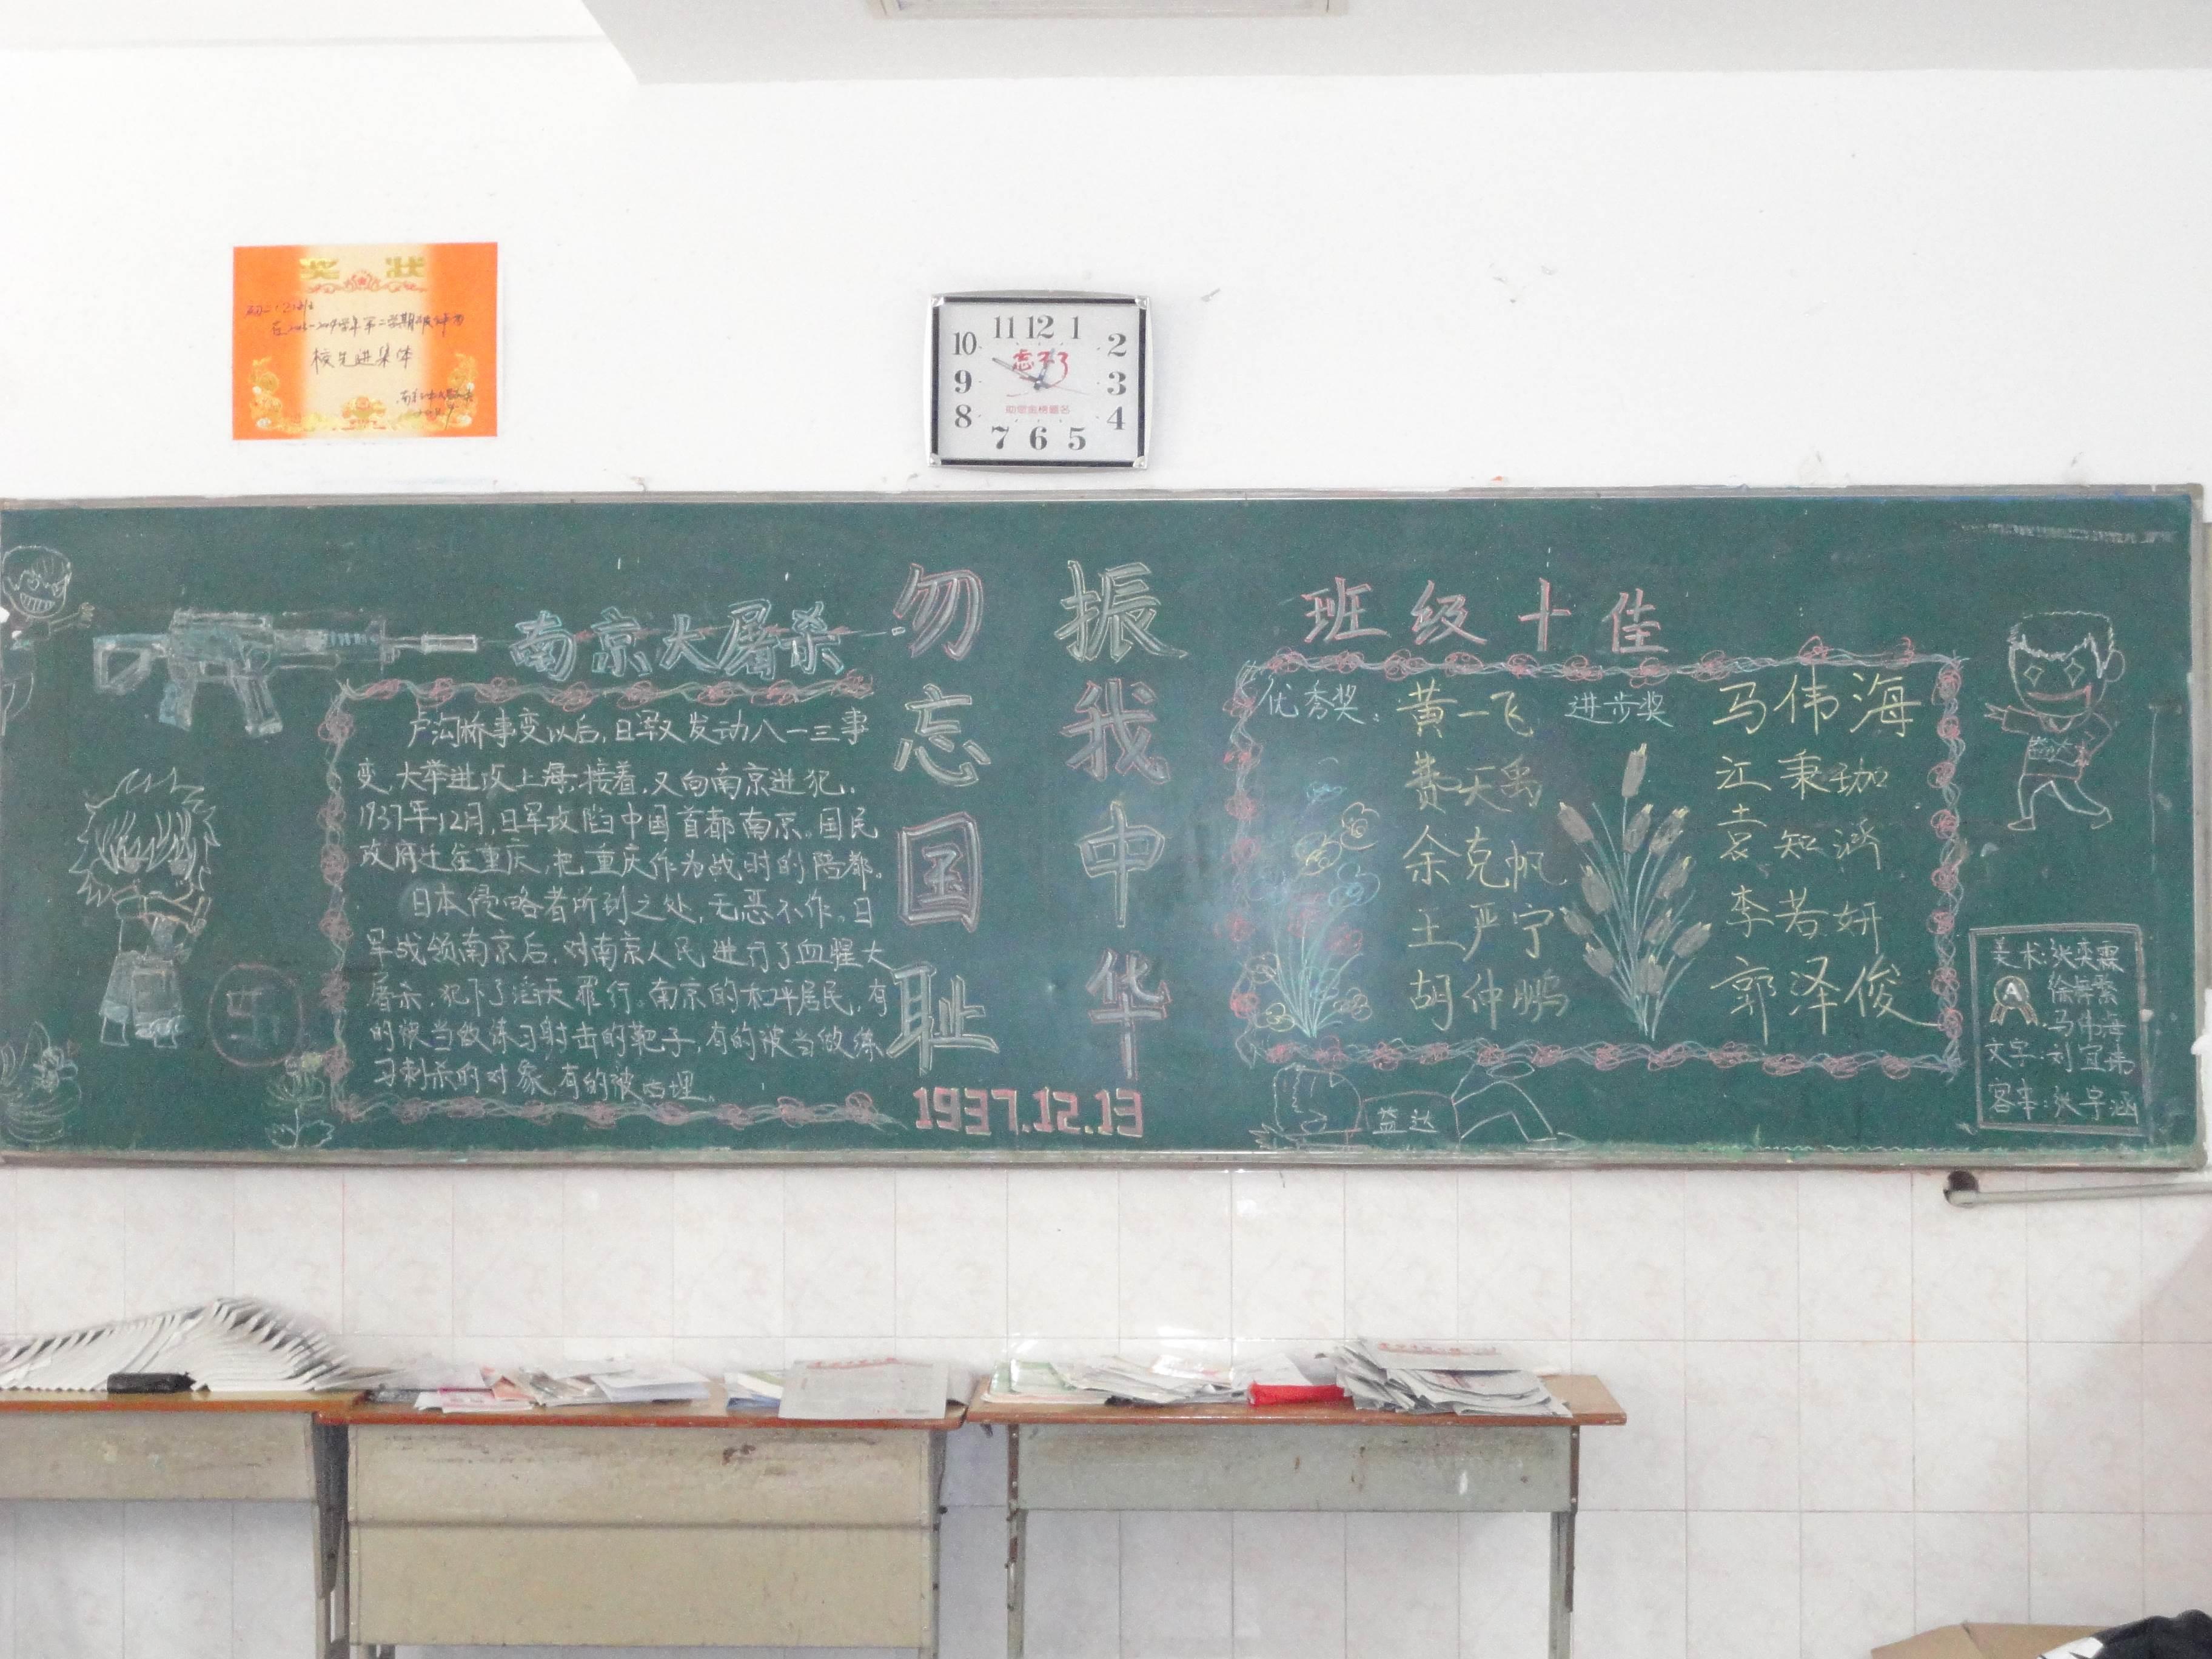 奖 状
校先进集体
11 12 1
10 2
9 3
8 4
7 6 5
忘不了
助您金榜题名
南京大屠杀
卢沟桥事变以后,日军又发动八一三事
变,大举进攻上海,接着,又向南京进犯.
1937年12月,日军攻陷中国首都南京。国民
政府迁往重庆,把重庆作为战时的陪都。
日本侵略者所到之处,无恶不作。日
军战领南京后,对南京人民进行了血腥大
屠杀,犯下了滔天罪行。南京的和平居民,有
的被当做练习射击的靶子,有的被当做练
习刺杀的对象,有的被活埋。
勿忘国耻
振我中华
1937.12.13
班级十佳
优秀奖:
黄一飞
费天禹
余克帆
王严宁
胡仲鹏
进步奖
马伟海
江秉珈
袁知济
李若妍
郭泽俊
益达
美术:张奕霖
A
马伟海
文字:刘宜
客串:张宇涵